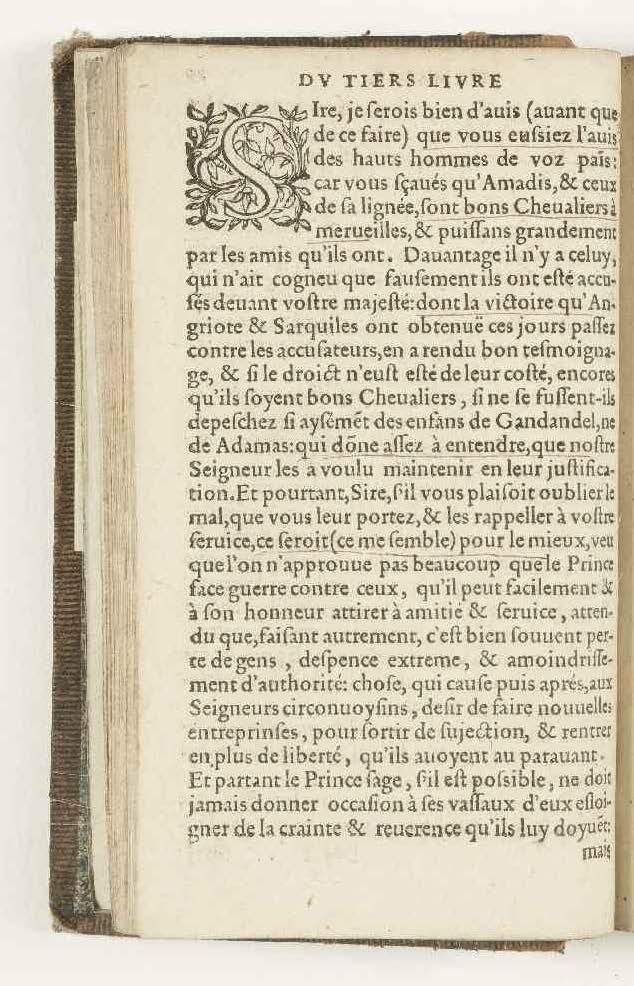 DV TIERS LIVRE
SIre, je ſerois bien d'auis (auant que
de ce faire) que vous euſsiez l'auis
des hauts hommes de voz païs:
car vous ſçaués qu'Amadis, & ceux
de ſa lignée, ſont bons Cheualiers à
merueilles, & puiſſans grandement
par les amis qu'ils ont. Dauantage il n'y a celuy,
qui n'ait cogneu que fauſement ils ont eſté accu-
ſés deuant voſtre majeſté: dont la victoire qu'An-
griote & Sarquiles ont obtenuë ces jours paſſez
contre les accuſateurs, en a rendu bon teſmoigna-
ge, & ſi le droict n'euſt eſté de leur coſté, encores
qu'ils ſoyent bons Cheualiers, ſi ne ſe fuſſent-ils
depeſchez ſi ayſemẽt des enfans de Gandandel, ne
de Adamas: qui dõne aſſez à entendre, que noſtre
Seigneur les a voulu maintenir en leur juſtifica-
tion. Et pourtant, Sire, ſ'il vous plaiſoit oublier le
mal, que vous leur portez, & les rappeller à voſtre
ſeruice, ce ſeroit (ce me ſemble) pour le mieux, veu
que l'on n'approuue pas beaucoup que le Prince
face guerre contre ceux, qu'il peut facilement &
à ſon honneur attirer à amitié & ſeruice, atten-
du que, faiſant autrement, c'eſt bien ſouuent per-
te de gens, deſpence extreme, & amoindriſſe-
ment d'authorité: choſe, qui cauſe puis aprés, aux
Seigneurs circonuoyſins, deſir de faire nouuelles
entreprinſes, pour ſortir de ſujection, & rentrer
en plus de liberté, qu'ils auoyent au parauant.
Et partant le Prince ſage, ſ'il eſt poſsible, ne doit
jamais donner occaſion à ſes vaſſaux d'eux eſloi-
gner de la crainte & reuerence qu'ils luy doyuẽt:
mais